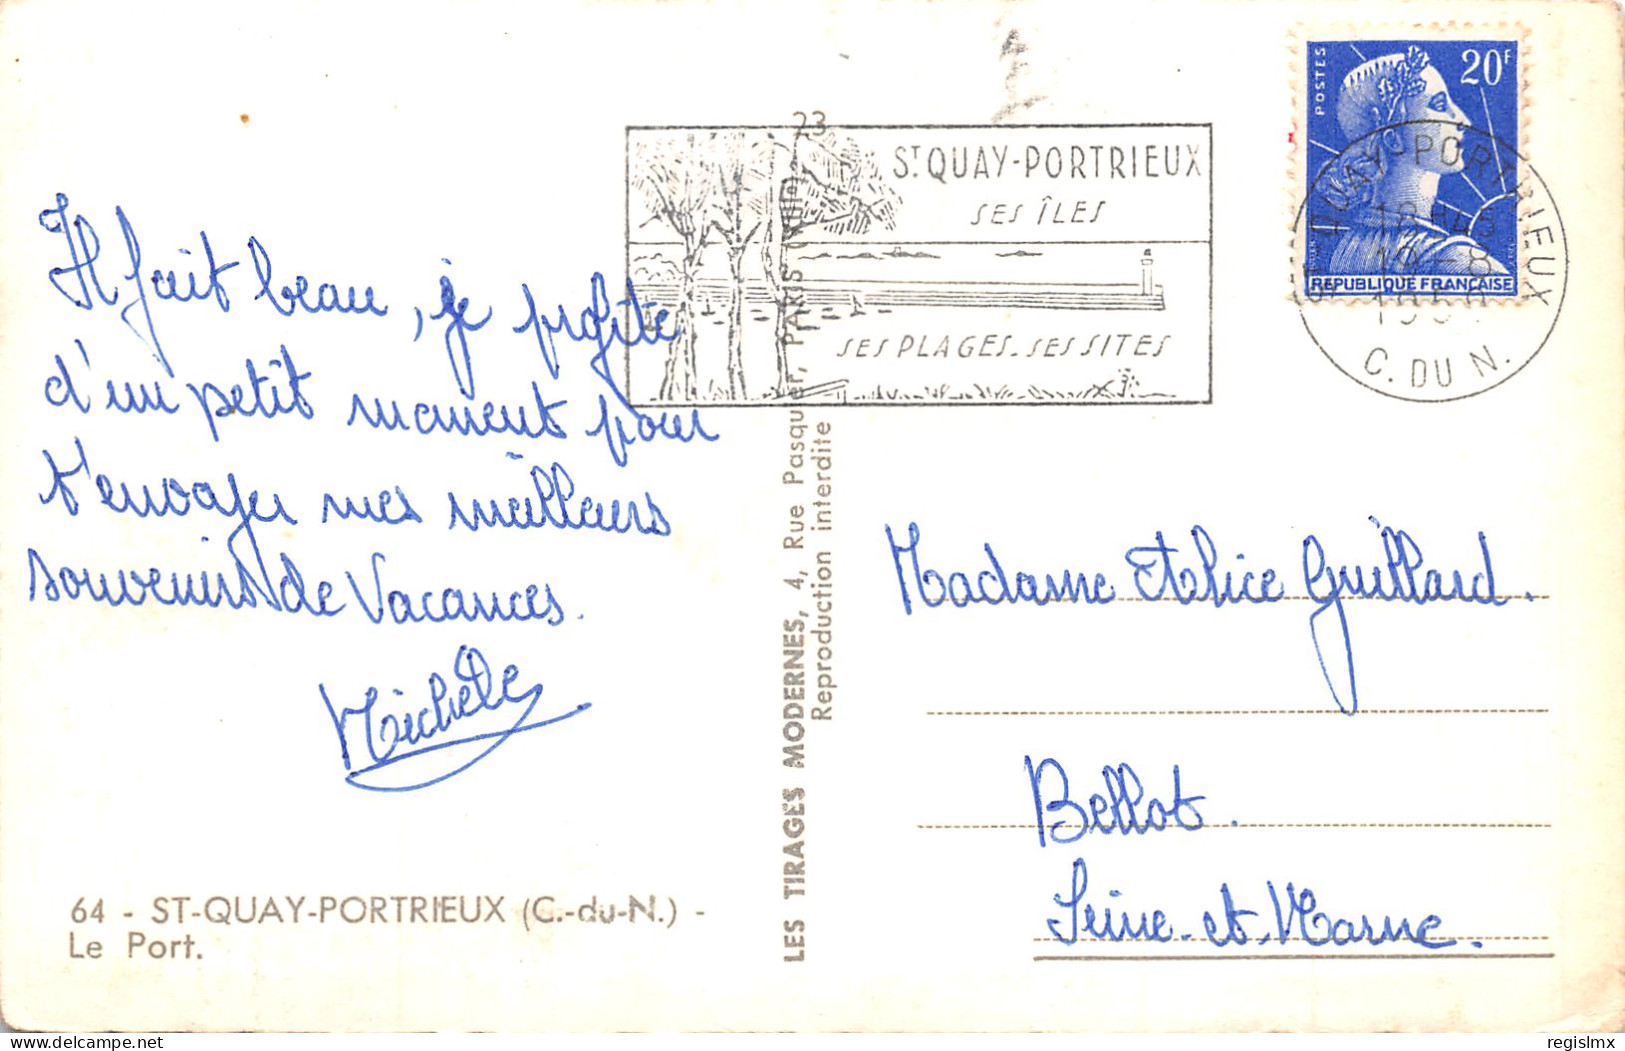 Il fait beau, je profite
d'un petit moment pour
t'envoyer mes meilleurs
souvenirs de Vacances.
Michèle
64 - ST-QUAY-PORTRIEUX (C.-du-N.) -
Le Port.
LES TIRAGES MODERNES, 4, Rue Pasquier, PARIS
Reproduction interdite
23
ST QUAY-PORTRIEUX
SES ÎLES
SES PLAGES. SES SITES
POSTES
20F
REPUBLIQUE FRANÇAISE
ST QUAY-PORTRIEUX
18H45
19-8
C. DU N.
Madame Alice Guillard.
Bellot.
Seine-et-Marne.
delcampe.net
regislmx